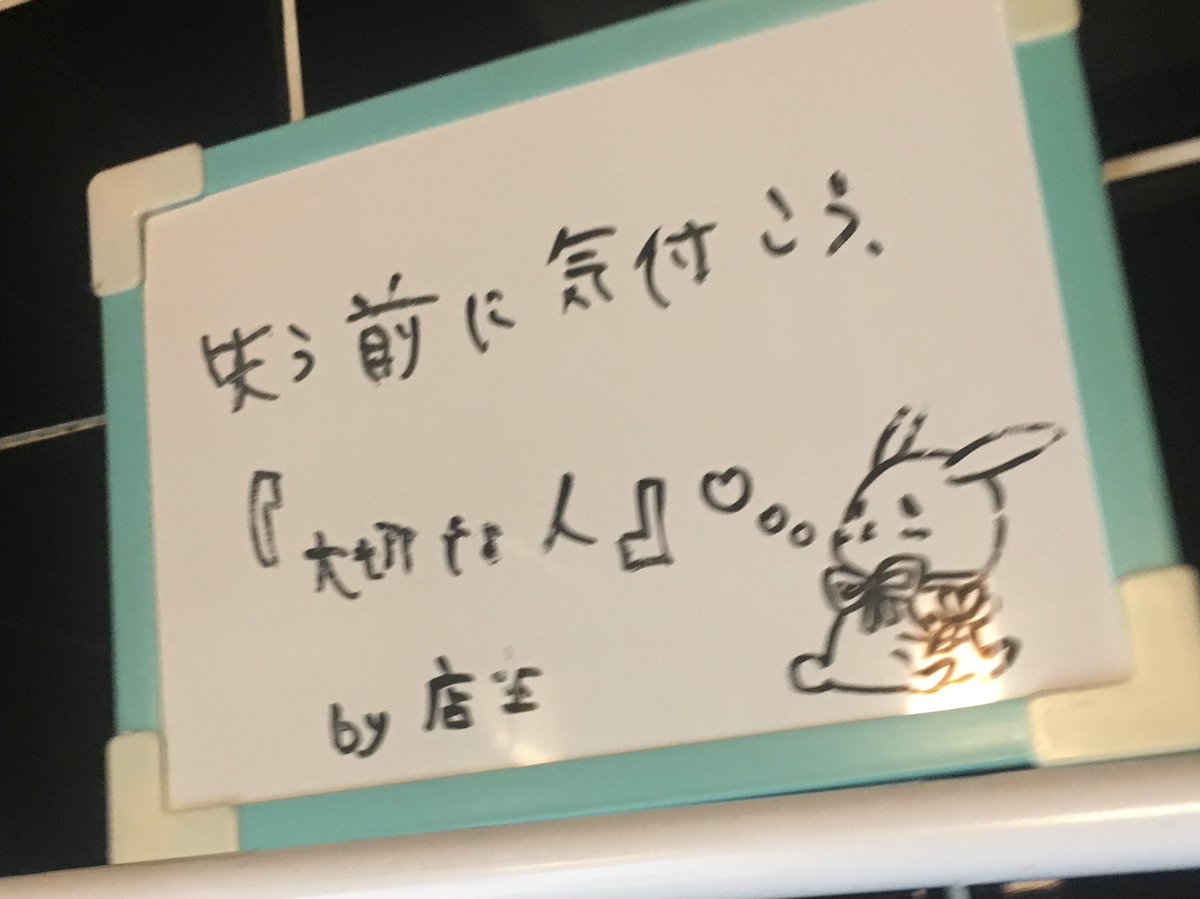 失う前に気付こう、
『大切な人』
by 店主